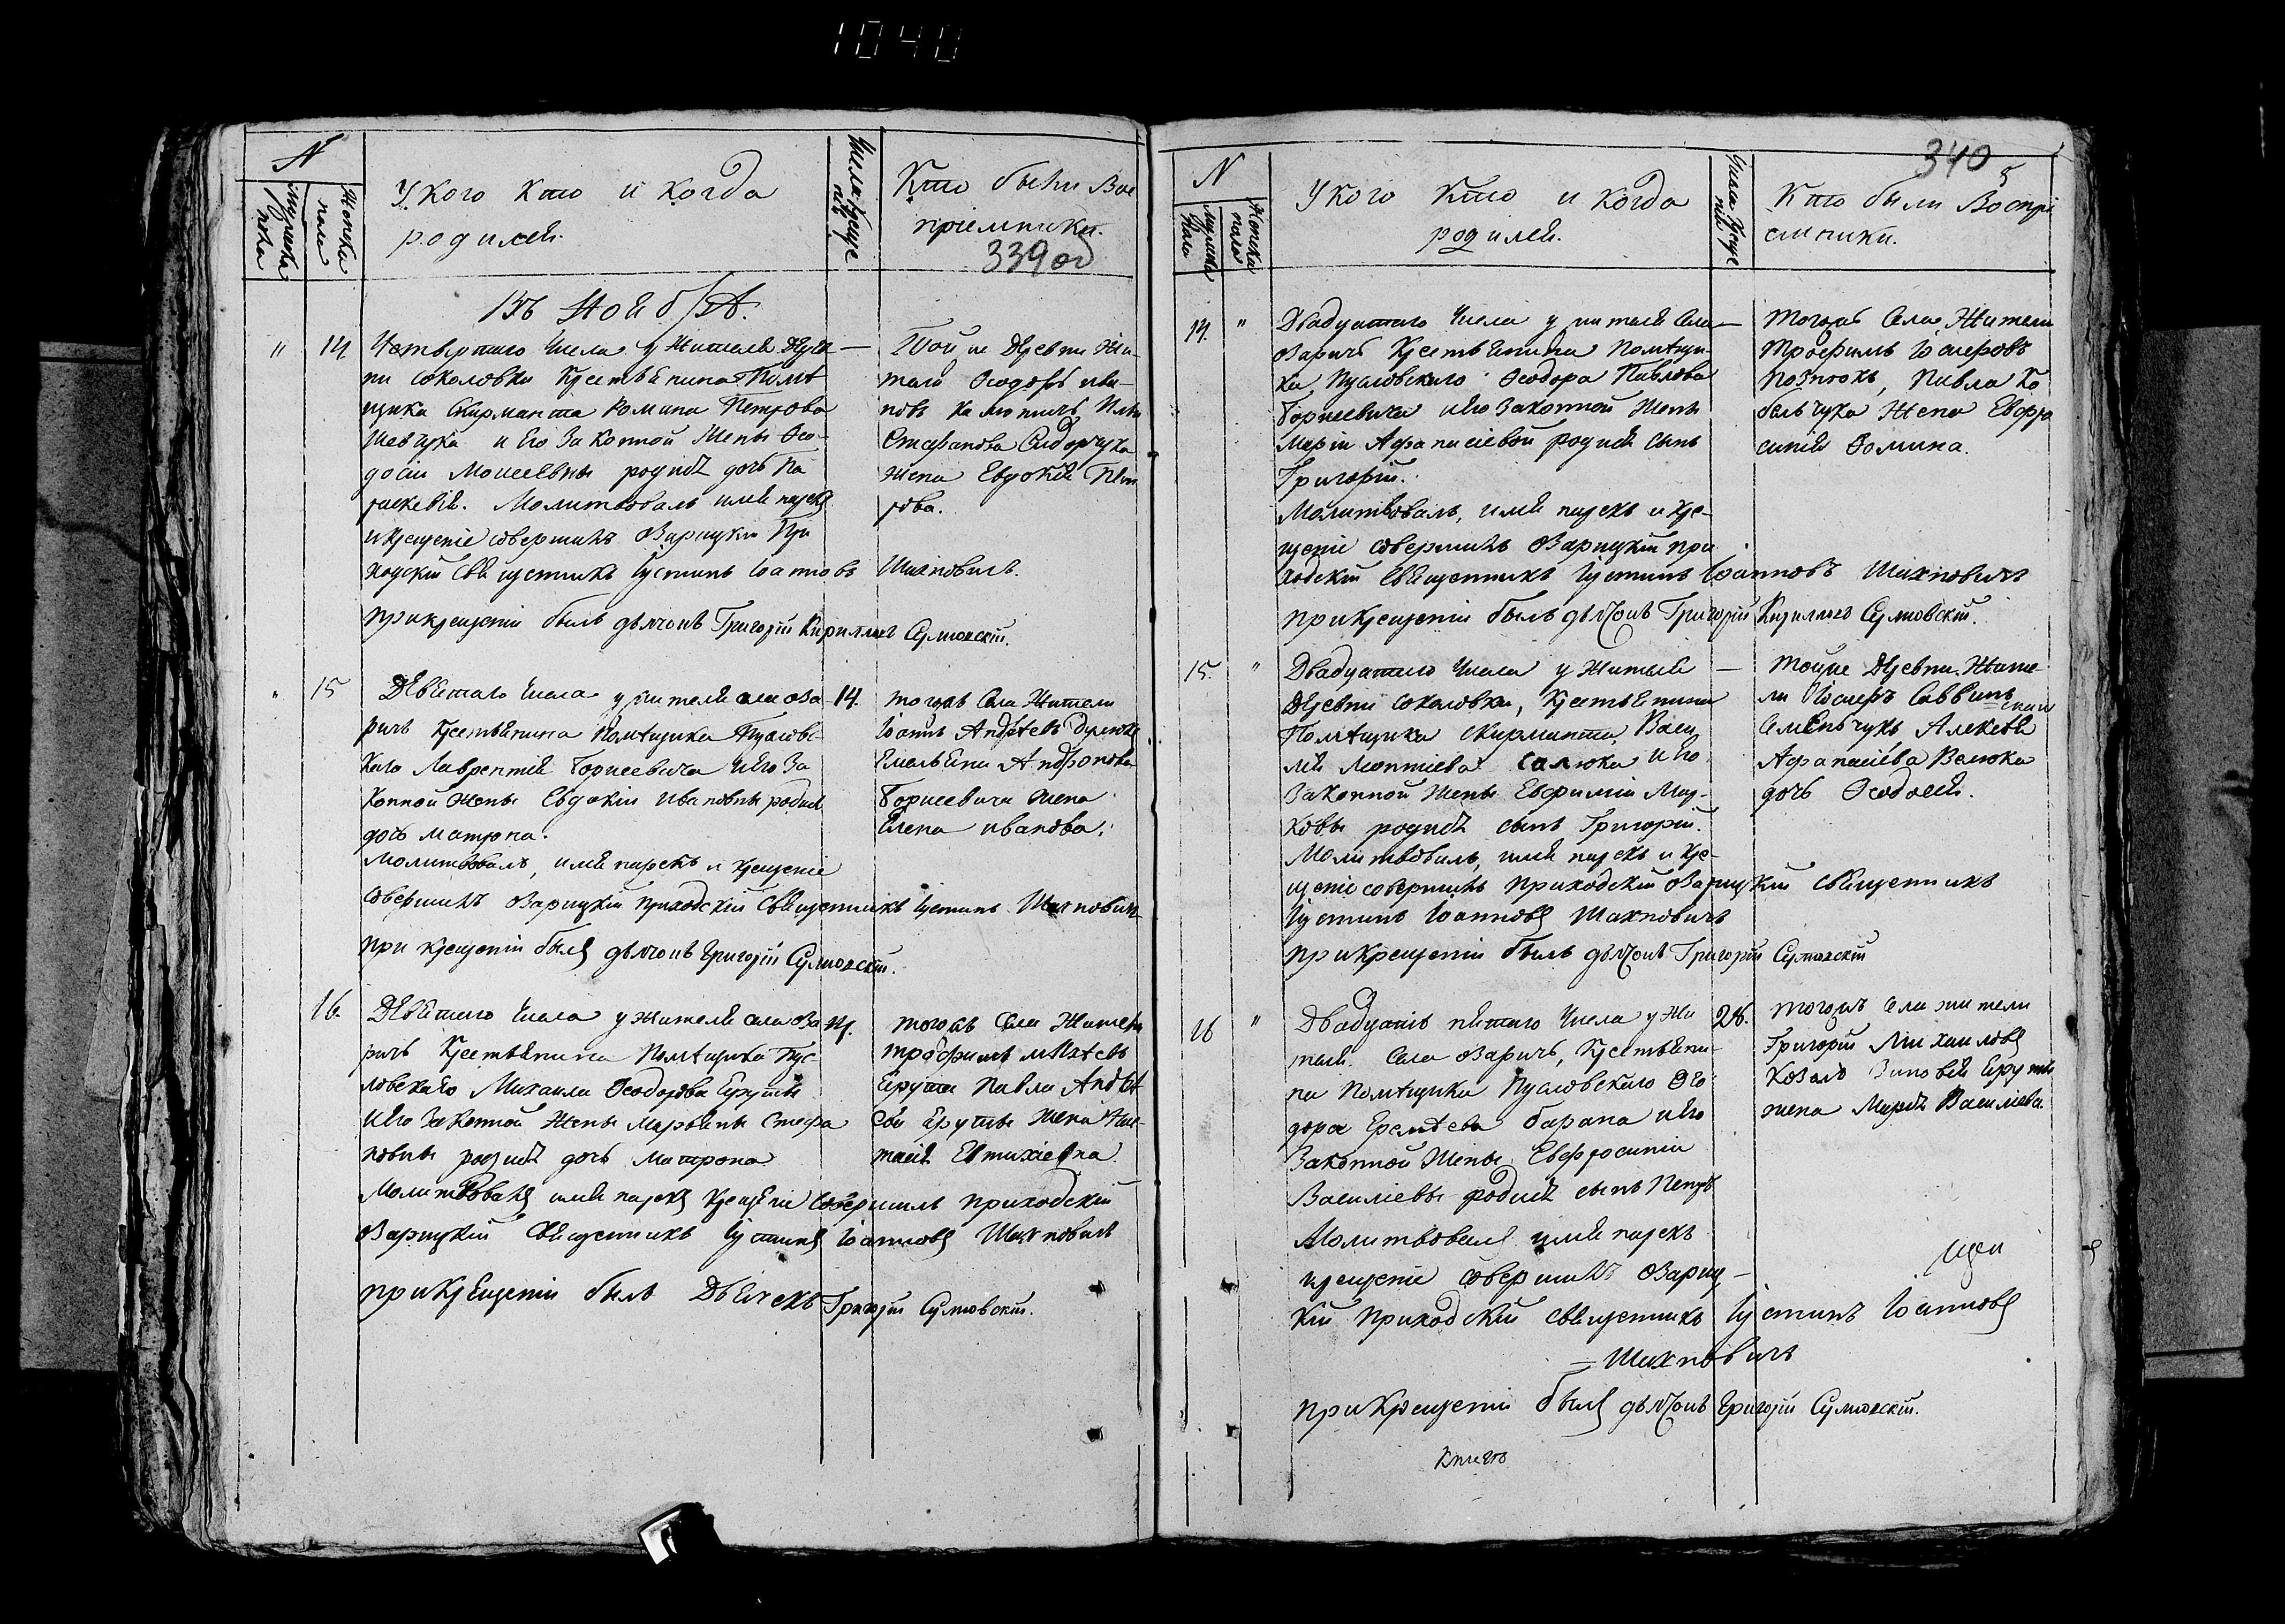 1040
N
мужеска пола
Женска пола
У кого кто и когда
родился.
Числа креще
нія
Кто были Вос
пріемники.
339 об
Въ Ноябрѣ.
" 14 Четвертаго Числа у Жителя Дерев
ни Соколовки Крестьянина Помѣ
щика Скирмонта Романа Петрова
Шевчука и Его Законной Жены Ѳео-
досіи Моисеевны родилась дочь Па
раскевія. Молитвовалъ имя нарекъ
и крещеніе совершилъ Озарицкій При
ходскій Священникъ Іустинъ Іоанновъ Шихновичъ.
При крещеніи былъ дьячокъ Григорій Кирилловъ Сулковскій.
Той же Деревни Жи-
тели Ѳеодоръ Ива-
новъ Калютичъ, Ильи
Стефанова Сидорчука
жена Евдокія Пет
рова.
" 15 Девятаго Числа у жителя села Оза 14.
ричъ Крестьянина Помѣщика Пусловс-
каго Лаврентія Борисевича и Его За
конной Жены Евдокіи Ивановны родилась
дочь Матрона.
Молитвовалъ, имя нарекъ и крещеніе
совершилъ Озарицкій Приходскій Священникъ Іустинъ Шихновичъ
При крещеніи былъ дьячокъ Григорій Сулковскій.
тогожъ Села Жители
Іоаннъ Андреевъ
Емельяна Андронова
Борисевича жена
Елена Иванова.
16. Девятаго Числа у жителя села Оза 14.
ричъ Крестьянина Помѣщика Пус
ловскаго Михаила Ѳеодорова Ярути
и Его Законной Жены Марьяны Стефа
новны родилась дочь Матрона
Молитвовалъ имя нарекъ крещеніе совершилъ приходскій
Озарицкій Священникъ Іустинъ Іоанновъ Шихновичъ
При крещеніи былъ Дьячекъ Григорій Сулковскій.
тогожъ Села Жители
Трофимъ
Ярута Павла Андре
жена
Евтихіевна.
340
N
мужска пола
Женска пола
У кого кто и когда
родился.
Числа Креще
нія
Кто были Воспрі
емники.
14. " Двадцатаго Числа у жителя Села
Озаричъ Крестьянина Помѣщи-
ка Пусловскаго Ѳеодора Павлова
Борисевича и его Законной Жены
Маріи Афанасіевой родился сынъ
Григорій.
Молитвовалъ, имя нарекъ и кре-
щеніе совершилъ Озарицкій при
ходскій Священникъ Іустинъ Іоанновъ Шихновичъ
при крещеніи былъ дьячокъ Григорій Кирилловъ Сулковскій.
тогожъ Села Жители
Трофимъ Іосифовъ
Познюкъ, Павла Ко
вальчука Жена Евфро
синія Фомина.
15. " Двадцатаго Числа у Жителя
Деревни Соколовки, Крестьянина
Помѣщика Скирмонта Васи
лія Леонтіева Салюка и Его
Законной Жены Евфиміи Мар-
ковы родился сынъ Григорій.
Молитвовалъ, имя нарекъ и кре-
щеніе совершилъ Приходскій Озарицкій Священникъ
Іустинъ Іоанновъ Шихновичъ
при крещеніи былъ дьячокъ Григорій Сулковскій
тойже Деревни Жите
ли Іосифъ Саввинъ
Семенчукъ Алексѣя
Афанасіева Велюка
дочь Ѳеодосія.
16 " Двадцать пятаго Числа у Жи 28.
теля Села Озаричъ, Крестьяни-
на Помѣщика Пусловскаго Ѳео
дора Еремѣева барана и его
Законной Жены Евфросиніи
Василіевы родился сынъ Петръ
Молитвовалъ имя нарекъ
крещеніе совершилъ Озариц-
кій Приходскій Священникъ Іустинъ Іоанновъ
= Шихновичъ
при Крещеніи былъ дьячокъ Григорій Сулковскій.
тогожъ Села жители
Григорій Михаиловъ
Козелъ Зиновія Яруты
жена Марія Василіева